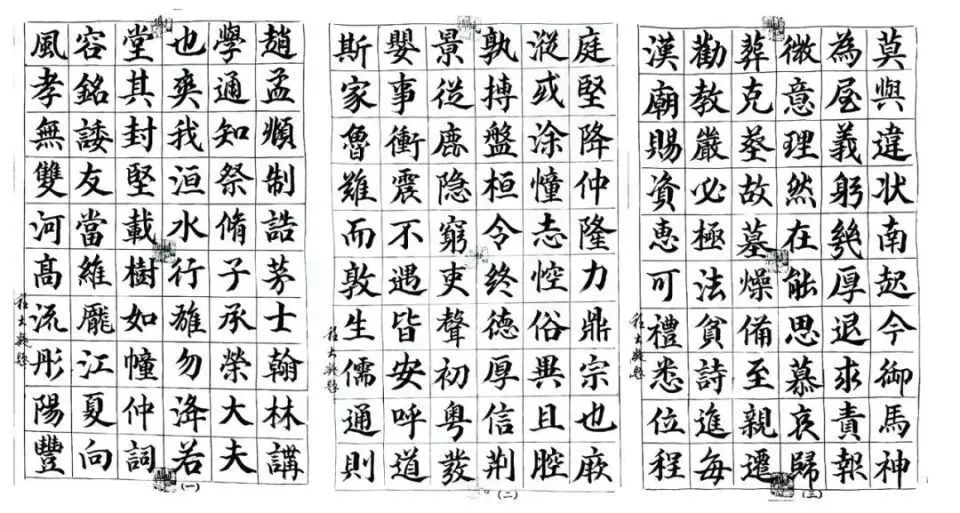 趙孟頫制誥士翰林講
學通知祭脩子承榮大夫
也爽我洹水行雄勿洚若
堂其封堅載樹如幢仲詞
容銘諉友當維龐江夏向
風孝無雙河高流彤陽豐
(一)
庭堅降仲隆力鼎宗也厥
漎或涂憧志悾俗異且腔
孰摶盤桓令終德厚信荆
景從鹿隐窮吏聲初粵發
嬰事衝震不遇皆安呼道
斯家魯難而敦生儒通則
(二)
莫與違状南起今御馬神
為屋義躬幾厚退求責報
微意理然在能思慕哀歸
葬克塟故墓燥備至親遷
勸教嚴必極法貧詩進每
漢廟賜資恵可禮悉位程
(三)